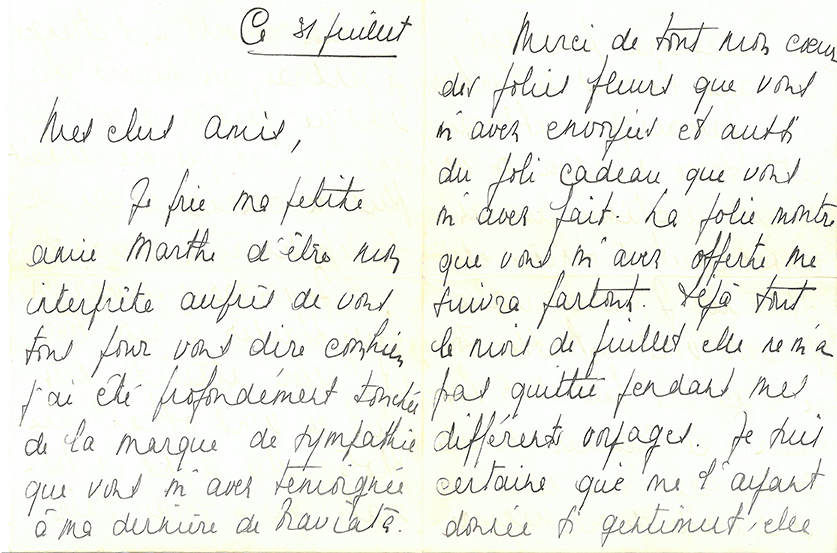 Ce 31 Juillet
Mes chers Amis,
Je prie ma petite
amie Marthe d'être mon
interprète auprès de vous
tous pour vous dire combien
j'ai été profondément touchée
de la marque de sympathie
que vous m'avez témoignée
à ma dernière de Traviata.
Merci de tout mon coeur
des jolies fleurs que vous
m'avez envoyées et aussi
du joli cadeau que vous
m'avez fait. La jolie montre
que vous m'avez offerte me
suivra partout. Déjà tout
le mois de juillet elle ne m'a
pas quittée pendant mes
différents voyages. Je suis
certaine que me l'ayant
donnée si gentiment, elle